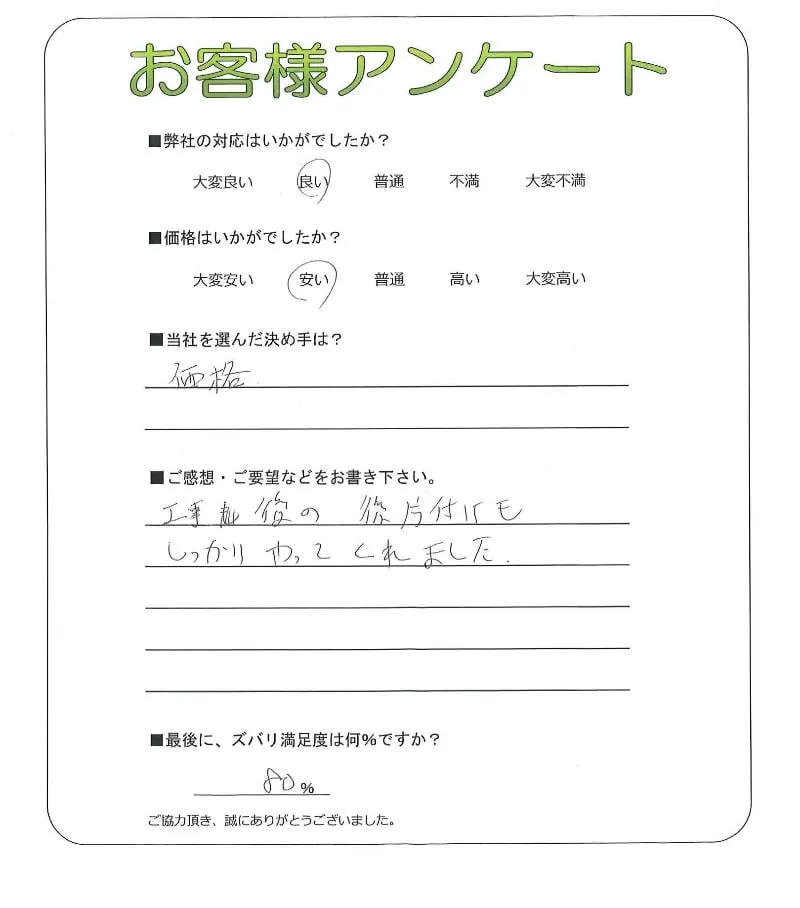 お客様アンケート
■弊社の対応はいかがでしたか？
大変良い 良い 普通 不満 大変不満
■価格はいかがでしたか？
大変安い 安い 普通 高い 大変高い
■当社を選んだ決め手は？
価格
■ご感想・ご要望などをお書き下さい。
工事 後の 後片付けも
しっかりやってくれました.
■最後に、ズバリ満足度は何％ですか？
80％
ご協力頂き、誠にありがとうございました。